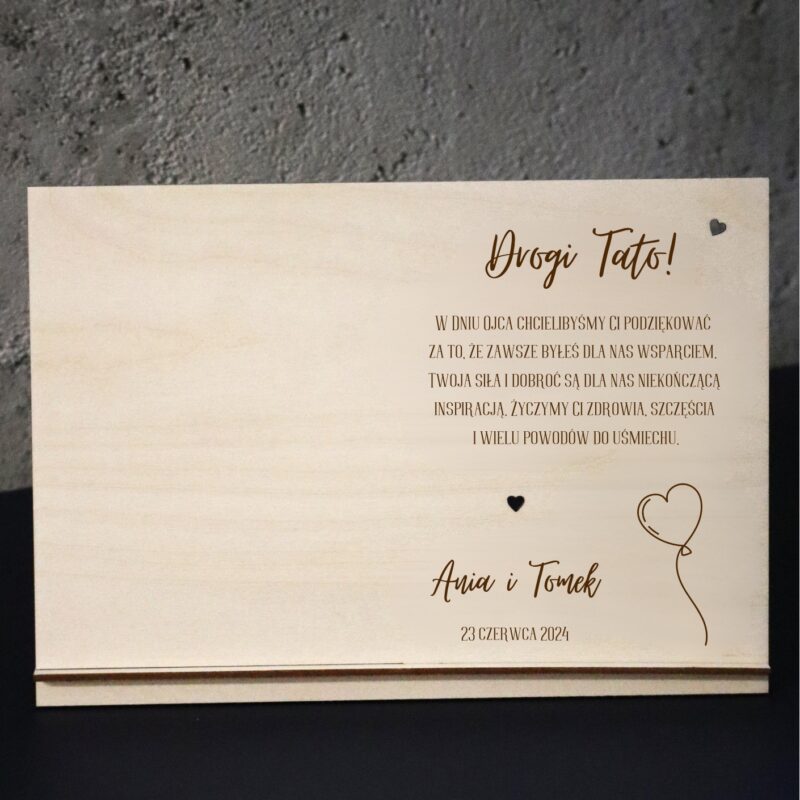 Drogi Tato!
W Dniu Ojca chcielibyśmy Ci podziękować
za to, że zawsze byłeś dla nas wsparciem.
Twoja siła i dobroć są dla nas niekończącą
inspiracją. Życzymy Ci zdrowia, szczęścia
i wielu powodów do uśmiechu.
Ania i Tomek
23 czerwca 2024